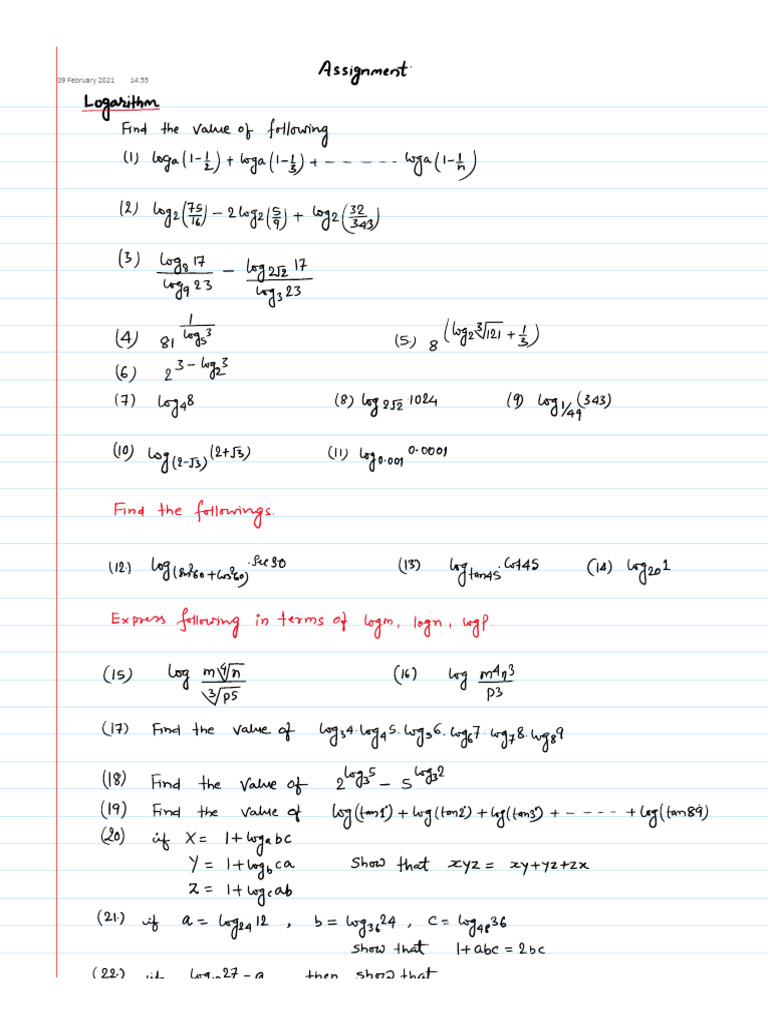 Assignment
09 February 2021 14:55
Logarithm
Find the value of following
(1) loga(1-1/2) + loga(1-1/3) + ------ loga(1-1/n)
(2) log₂(75/16) - 2 log₂(5/9) + log₂(32/343)
(3) log₈17/log₉23 - log₂√₂ 17/log₃23
(4) 81^(1/log₅3) (5.) 8^(log₂∛121 + 1/3)
(6) 2^(3-log₂3)
(7) log₄8 (8) log₂√₂ 1024 (9) log₁/₄₉(343)
(10) log₍₂₋√₃₎(2+√3) (11) log₀.₀₀₁ 0.0001
Find the followings.
(12) log(sin²60+cos²60) Sec30 (13) log tan45° Cot45 (14) log₂₀1
Express following in terms of logm, logn, logp.
(15) log m∜n/∛p5 (16) log m4n3/p3
(17) Find the value of log₃4.log₄5.log₅6.log₆7.log₇8.log₈9
(18) Find the value of 2^log₃5 - 5^log₃2
(19) Find the value of log(tan1°) + log(tan2°) + log(tan3°) + ---- + log(tan89)
(20) if X = 1+logₐbc
Y = 1+log_b ca Show that xyz = xy+yz+zx
Z = 1+log_c ab
(21.) if a = log₂₄12, b = log₃₆24, c = log₄₈36
show that 1+abc = 2bc
(22.) if 27 = a then show that